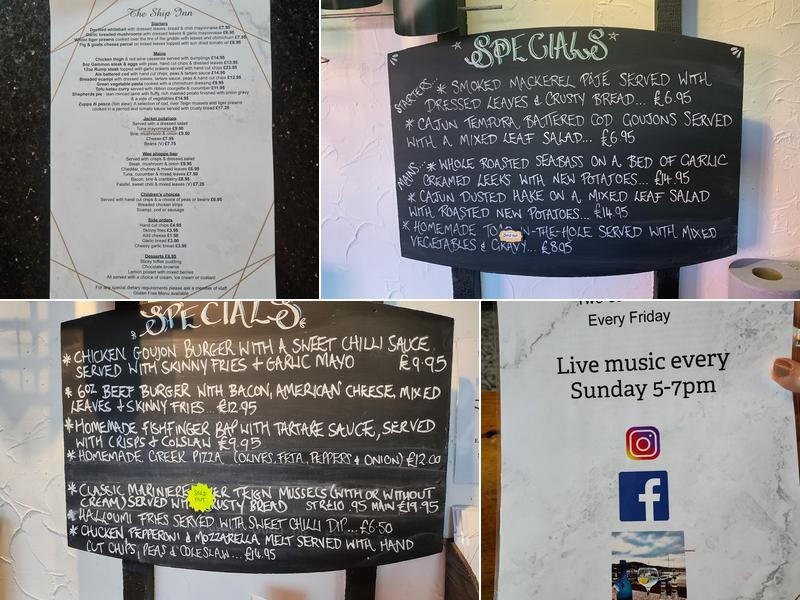 The Ship Inn
Starters
Devilled whitebait with dressed leaves, bread & chilli mayonnaise £7.50
Garlic breaded mushrooms with dressed leaves & garlic mayonnaise £6.95
Whole tiger prawns cooked over the fire of the griddle with leaves and chimichurri £7.95
Fig & goats cheese parcel on mixed leaves topped with sun dried tomato oil £8.95
Mains
Chicken thigh and red wine casserole served with dumplings £14.95
8oz Gammon steak & eggs with peas, hand cut chips & dressed leaves £13.95
12oz Rump steak topped with garlic prawns served with hand cut chips £23.95
Ale battered cod with hand cut chips, peas & tartare sauce £14.95
Breaded scampi with dressed leaves, tartare sauce, peas & hand cut chips £12.95
Green vegetable pasta cooked with a chimichurri dressing £9.95
Tofu katsu curry served with ribbon courgette & cucumber £11.95
Shepherds pie - lean minced lamb with fluffy, rich mashed potato finished with onion gravy
& a side of vegetables £14.95
Zuppa di pesce (fish stew). A selection of cod, river Teign mussels and tiger prawns
cooked in a parrnod and tomato sauce served with crusty bread £17.25
Jacket potatoes
Served with a dressed salad
Tuna mayonnaise £9.50
Brie, mushroom & onion £9.00
Cheese £7.95
Beans (V) £7.75
Wee shoppe bap
Served with crisps & dressed salad
Steak, mushroom & onion £9.95
Cheddar, chutney & mixed leaves £6.95
Tuna, cucumber & mixed leaves £7.50
Bacon, brie & cranberry £8.95
Falafel, sweet chilli & mixed leaves (V) £7.25
Children's choices
Served with hand cut chips & a choice of peas or beans £6.95
Breaded chicken strips
Scampi, cod or sausage
Side orders
Hand cut chips £4.95
Skinny fries £3.95
Add cheese £1.50
Garlic bread £3.00
Cheesy garlic bread £3.95
Desserts £6.95
Sticky toffee pudding
Chocolate brownie
Lemon posset with mixed berries
All served with a choice of cream, ice cream or custard
For any special dietary requirements please ask a member of staff
Gluten Free Menu available
SPECIALS
STARTERS: * SMOKED MACKEREL PATE SERVED WITH
DRESSED LEAVES & CRUSTY BREAD... £6.95
* CAJUN TEMPURA BATTERED COD GOUJONS SERVED
WITH A MIXED LEAF SALAD... £6.95
MAINS: * WHOLE ROASTED SEABASS ON A BED OF GARLIC
CREAMED LEEKS WITH NEW POTATOES... £14.95
* CAJUN DUSTED HAKE ON A MIXED LEAF SALAD
WITH ROASTED NEW POTATOES... £14.95
* HOMEMADE IN-THE-HOLE SERVED WITH MIXED
VEGETABLES & GRAVY... £8.95
SPECIALS
* CHICKEN GOUJON BURGER WITH A SWEET CHILLI SAUCE
SERVED WITH SKINNY FRIES + GARLIC MAYO £9.95
* 6OZ BEEF BURGER WITH BACON, AMERICAN CHEESE, MIXED
LEAVES + SKINNY FRIES... £12.95
* HOMEMADE FISHFINGER BAP WITH TARTARE SAUCE, SERVED
WITH CRISPS & COLSLAW £9.95
* HOMEMADE GREEK PIZZA (OLIVES, FETA, PEPPERS & ONION) £12.00
* CLASSIC MARINIERE TEIGN MUSSELS (WITH OR WITHOUT
CREAM) SERVED WITH CRUSTY BREAD STR £10.95 MAIN £19.95
SOLD OUT
* HALLOUMI FRIES SERVED WITH SWEET CHILLI DIP.... £6.50
* CHICKEN PEPPERONI & MOZZARELLA MELT SERVED WITH HAND
CUT CHIPS, PEAS & COLESLAW... £14.95
Every Friday
Live music every
Sunday 5-7pm